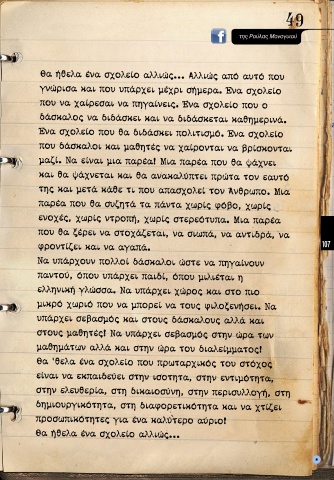 49
f της Ρούλας Μονογυιού
θα ήθελα ένα σχολείο αλλιώς... Αλλιώς από αυτό που
γνώρισα και που υπάρχει μέχρι σήμερα. Ένα σχολείο
που να χαίρεσαι να πηγαίνεις. Ένα σχολείο που ο
δάσκαλος να διδάσκει και να διδάσκεται καθημερινά.
Ένα σχολείο που θα διδάσκει πολιτισμό. Ένα σχολείο
που δάσκαλοι και μαθητές να χαίρονται να βρίσκονται
μαζί. Να είναι μια παρέα! Μια παρέα που θα ψάχνει
και θα ψάχνεται και θα ανακαλύπτει πρώτα τον εαυτό
της και μετά κάθε τι που απασχολεί τον Άνθρωπο. Μια
παρέα που θα συζητά τα πάντα χωρίς φόβο, χωρίς
ενοχές, χωρίς ντροπή, χωρίς στερεότυπα. Μια παρέα
που θα ξέρει να στοχάζεται, να σιωπά, να αντιδρά, να
φροντίζει και να αγαπά.
Να υπάρχουν πολλοί δάσκαλοι ώστε να πηγαίνουν
παντού, όπου υπάρχει παιδί, όπου μιλιέται η
ελληνική γλώσσα. Να υπάρχει χώρος και στο πιο
μικρό χωριό που να μπορεί να τους φιλοξενήσει. Να
υπάρχει σεβασμός και στους δάσκαλους αλλά και
στους μαθητές! Να υπάρχει σεβασμός στην ώρα των
μαθημάτων αλλά και στην ώρα του διαλείμματος!
θα 'θελα ένα σχολείο που πρωταρχικός του στόχος
είναι να εκπαιδεύει στην ισοτητα, στην εντιμότητα,
στην ελευθερία, στη δικαιοσύνη, στην περισυλλογή, στη
δημιουργικότητα, στη διαφορετικότητα και να χτίζει
προσωπικότητες για ένα καλύτερο αύριο!
θα ήθελα ένα σχολείο αλλιώς...
107